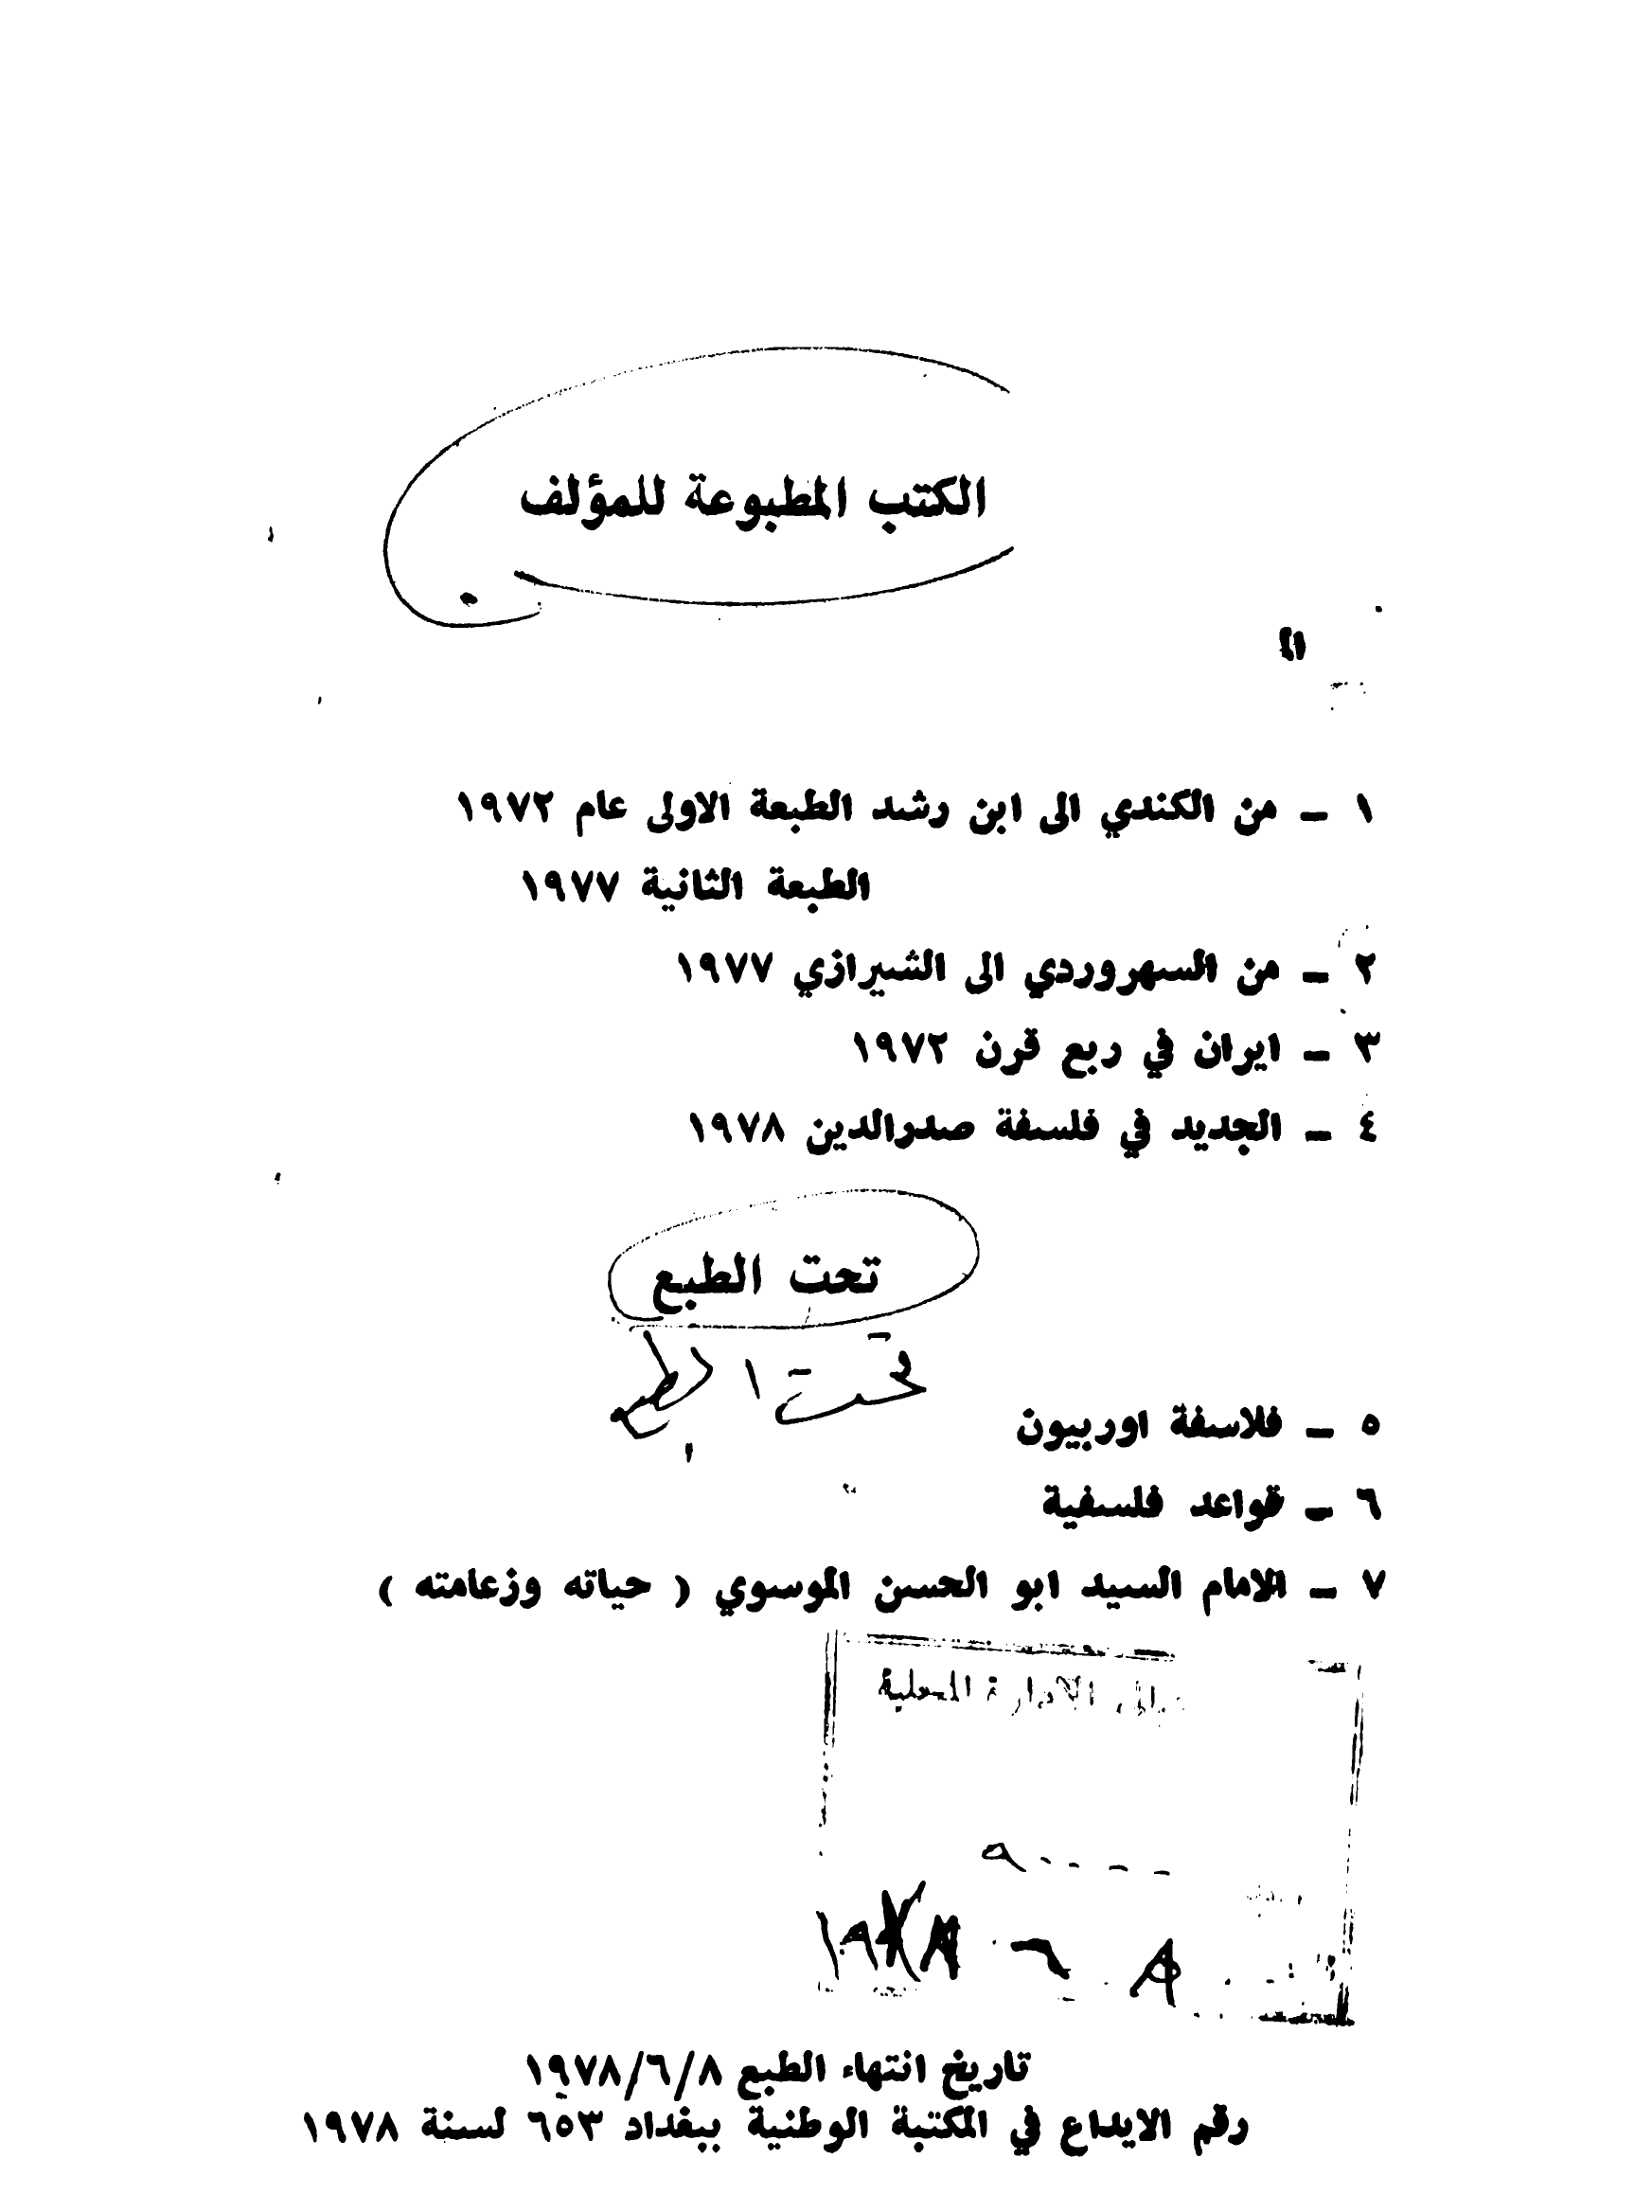 الكتب المطبوعة للمؤلف
١ – من الكندي الى ابن رشد الطبعة الاولى عام ١٩٧٢
الطبعة الثانية ١٩٧٧
٢ – من السهروردي الى الشيرازي ١٩٧٧
٣ – ايران في ربع قرن ١٩٧٢
٤ – الجديد في فلسفة صدرالدين ١٩٧٨
تحت الطبع
تحت الطبع
٥ – فلاسفة اوربيون
٦ – قواعد فلسفية
٧ – الامام السيد ابو الحسن الموسوي ( حياته وزعامته )
الادارة المحلية
٨ ٦ ١٩٧٨
تاريخ انتهاء الطبع ١٩٧٨/٦/٨
رقم الايداع في المكتبة الوطنية ببغداد ٦٥٣ لسنة ١٩٧٨